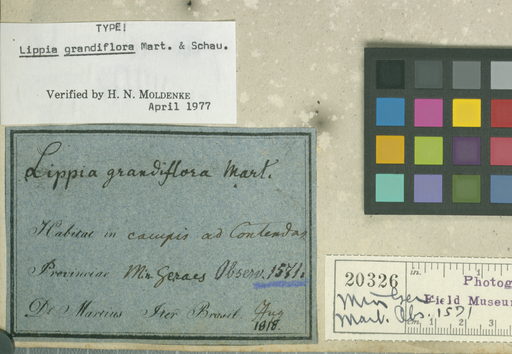 TYPE!
Lippia grandiflora Mart. & Schau.
Verified by H. N. MOLDENKE
April 1977
Lippia grandiflora Mart.
Habitat in campis ad Contendas
Provinciae Min Geraes Observ. 1571.
Dr Martius Iter Brasil. Aug
1818.
20326
in. 1
Photog
Min Ger
Field Museu
Mart. Obs. 1571
cm 1 2 3